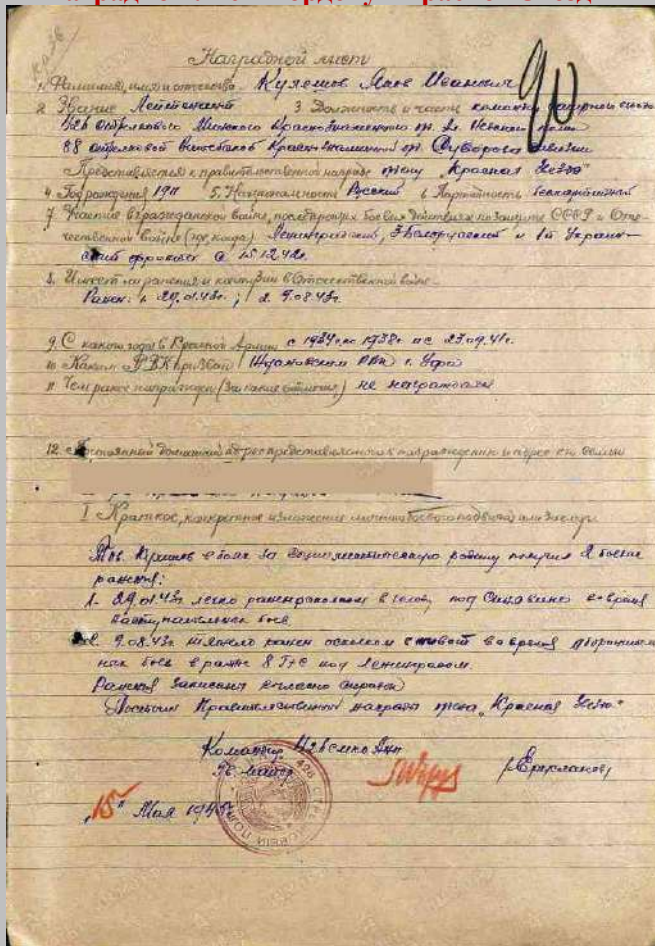 Наградной лист
90
1. Фамилия, имя и отчество Кулешов Яков Иванович
2. Звание Лейтенант 3. Должность и часть
стрелкового Краснознаменного полка
88 стрелковой Витебской Краснознаменной Суворова дивизии
Представляется к правительственной награде "Красная Звезда"
4. Год рождения 1911 5. Национальность Русский 6. Партийность беспартийный
7. Участие в гражданской войне, последующих боевых действиях по защите СССР и Оте-
чественной войне (где, когда) Ленинградский, 3 Белорусский и 1й Украин-
ский с 15.12.42г.
8. Имеет ли ранения и контузии в Отечественной войне
Ранен: 1. 29.01.43г.; 2. 9.08.43г.
9. С какого года в Красной Армии с 1934г. по 1938г. и с 23.09.41г.
10. Каким РВК призван Ждановским РВК г. Уфа
11. Чем ранее награжден (за какие отличия) не награждался
12. Постоянный домашний адрес представляемого к награждению и адрес его семьи
I Краткое, конкретное изложение личного боевого подвига или заслуг
Тов. Кулешов в боях за социалистическую родину получил 2 боевые
ранения:
1. 29.01.43г. легко ранен осколком в голову под Синявино во время
наступательных боев.
2. 9.08.43г. ранен осколком в живот во время
боев в районе 8 ГЭС под Ленинградом.
Ранения записаны согласно справок
Достоин Правительственной награды "Красная Звезда"
Командир
Гв. майор
"15" Мая 1945